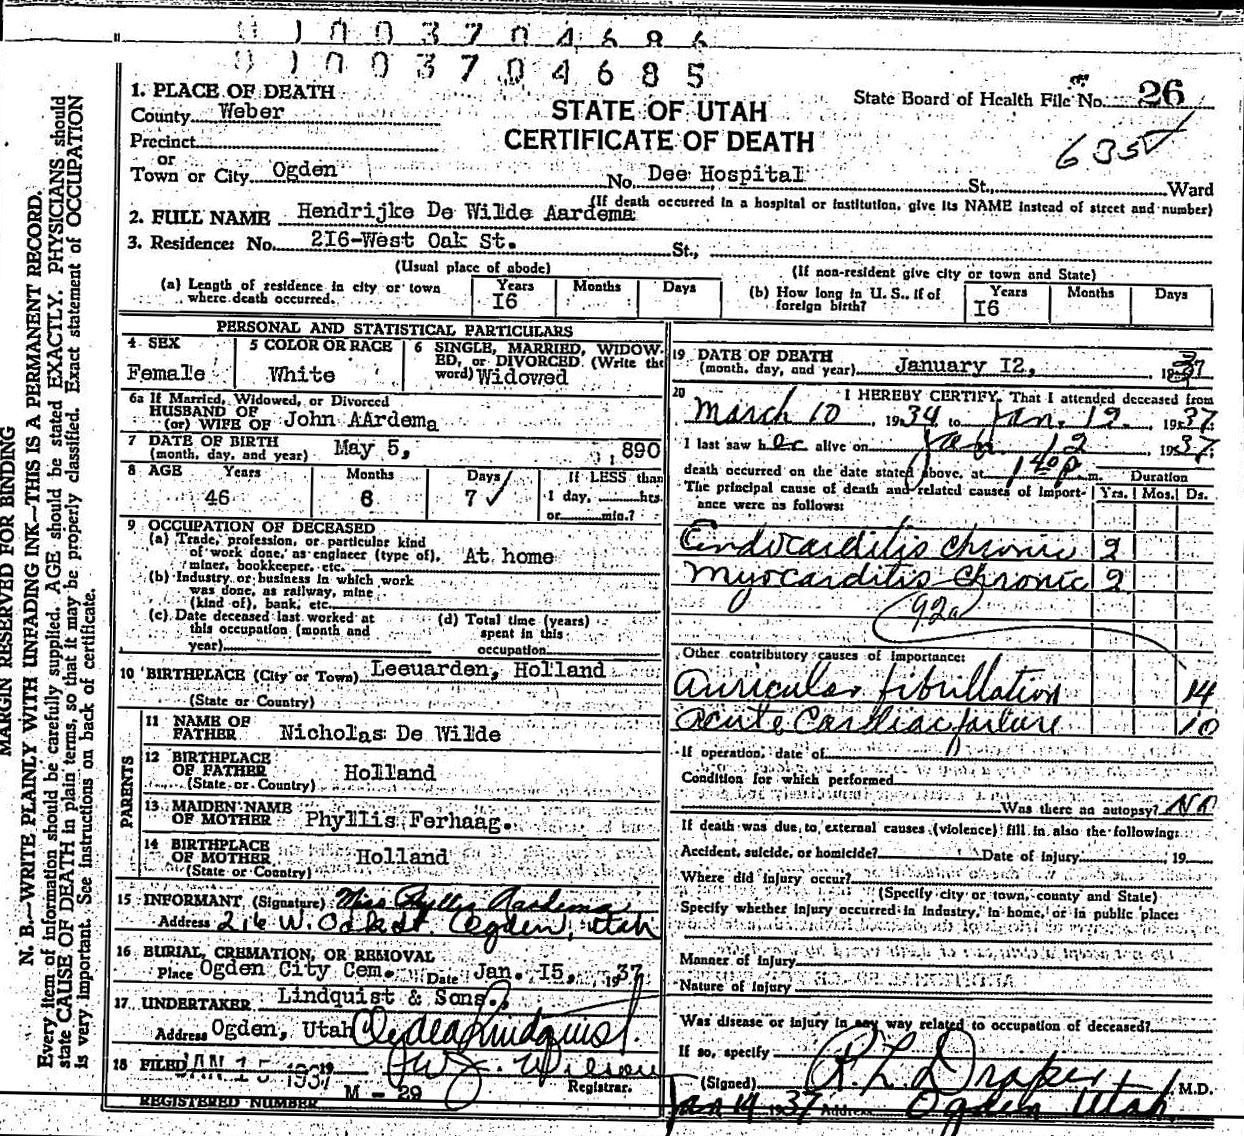 0 1 0 0 3 7 0 4 6 8 6
0 1 0 0 3 7 0 4 6 8 5
MARGIN RESERVED FOR BINDING
N. B.—WRITE PLAINLY WITH UNFADING INK—THIS IS A PERMANENT RECORD.
Every item of information should be carefully supplied. AGE should be stated EXACTLY. PHYSICIANS should
state CAUSE OF DEATH in plain terms, so that it may be properly classified. Exact statement of OCCUPATION
is very important. See instructions on back of certificate.
STATE OF UTAH
CERTIFICATE OF DEATH
State Board of Health File No. 26
635
1. PLACE OF DEATH
County Weber
Precinct
or
Town or City Ogden No. Dee Hospital St. Ward
(If death occurred in a hospital or institution, give its NAME instead of street and number)
2. FULL NAME Hendrijke De Wilde Aardema
3. Residence: No. 2I6-West Oak St. St.,
(Usual place of abode) (If non-resident give city or town and State)
(a) Length of residence in city or town where death occurred. Years I6 Months Days
(b) How long in U. S., if of foreign birth? Years I6 Months Days
PERSONAL AND STATISTICAL PARTICULARS
4 SEX Female
5 COLOR OR RACE White
6 SINGLE, MARRIED, WIDOW-
ED, or DIVORCED (Write the
word) Widowed
6a If Married, Widowed, or Divorced
HUSBAND OF
(or) WIFE OF John AArdema
7 DATE OF BIRTH
(month, day, and year) May 5, 890
8 AGE Years 46 Months 6 Days 7 If LESS than
1 day, hrs.
or min.?
9 OCCUPATION OF DECEASED
(a) Trade, profession, or particular kind
of work done, as engineer (type of),
miner, bookkeeper, etc. At home
(b) Industry or business in which work
was done, as railway, mine
(kind of), bank, etc.
(c) Date deceased last worked at
this occupation (month and
year)
(d) Total time (years)
spent in this
occupation
10 BIRTHPLACE (City or Town) Leeuarden, Holland
(State or Country)
PARENTS
11 NAME OF
FATHER Nicholas De Wilde
12 BIRTHPLACE
OF FATHER Holland
(State or Country)
13 MAIDEN NAME
OF MOTHER Phyllis Ferhaag.
14 BIRTHPLACE
OF MOTHER Holland
(State or Country)
15 INFORMANT (Signature) Miss Phyllis Aardema
Address 216 W. Oak st. Ogden, Utah
16 BURIAL, CREMATION, OR REMOVAL
Place Ogden City Cem. Date Jan. I5, 1937
17 UNDERTAKER Lindquist & Sons.,
Address Ogden, Utah Clyde Lindquist
18 FILED JAN 15 1937 Wilson
Registrar.
REGISTERED NUMBER M - 29
19 DATE OF DEATH
(month, day, and year) January I2, 1937
20 I HEREBY CERTIFY, That I attended deceased from
March 10, 1934 to Jan. 12, 1937
I last saw her alive on Jan. 12 1937
death occurred on the date stated above, at 1 40 P m. Duration
The principal cause of death and related causes of import-
ance were as follows: Yrs. Mos. Ds.
Endocarditis chronic 2
Myocarditis chronic 2
92a
Other contributory causes of importance:
Auricular fibrillation 14
Acute Cardiac failure 10
If operation, date of
Condition for which performed
Was there an autopsy? No
If death was due to external causes (violence) fill in also the following:
Accident, suicide, or homicide? Date of injury 19
Where did injury occur?
(Specify city or town, county and State)
Specify whether injury occurred in industry, in home, or in public place:
Manner of injury
Nature of injury
Was disease or injury in any way related to occupation of deceased?
If so, specify
(Signed) R. L. Draper M.D.
Jan 14 1937 Address Ogden Utah